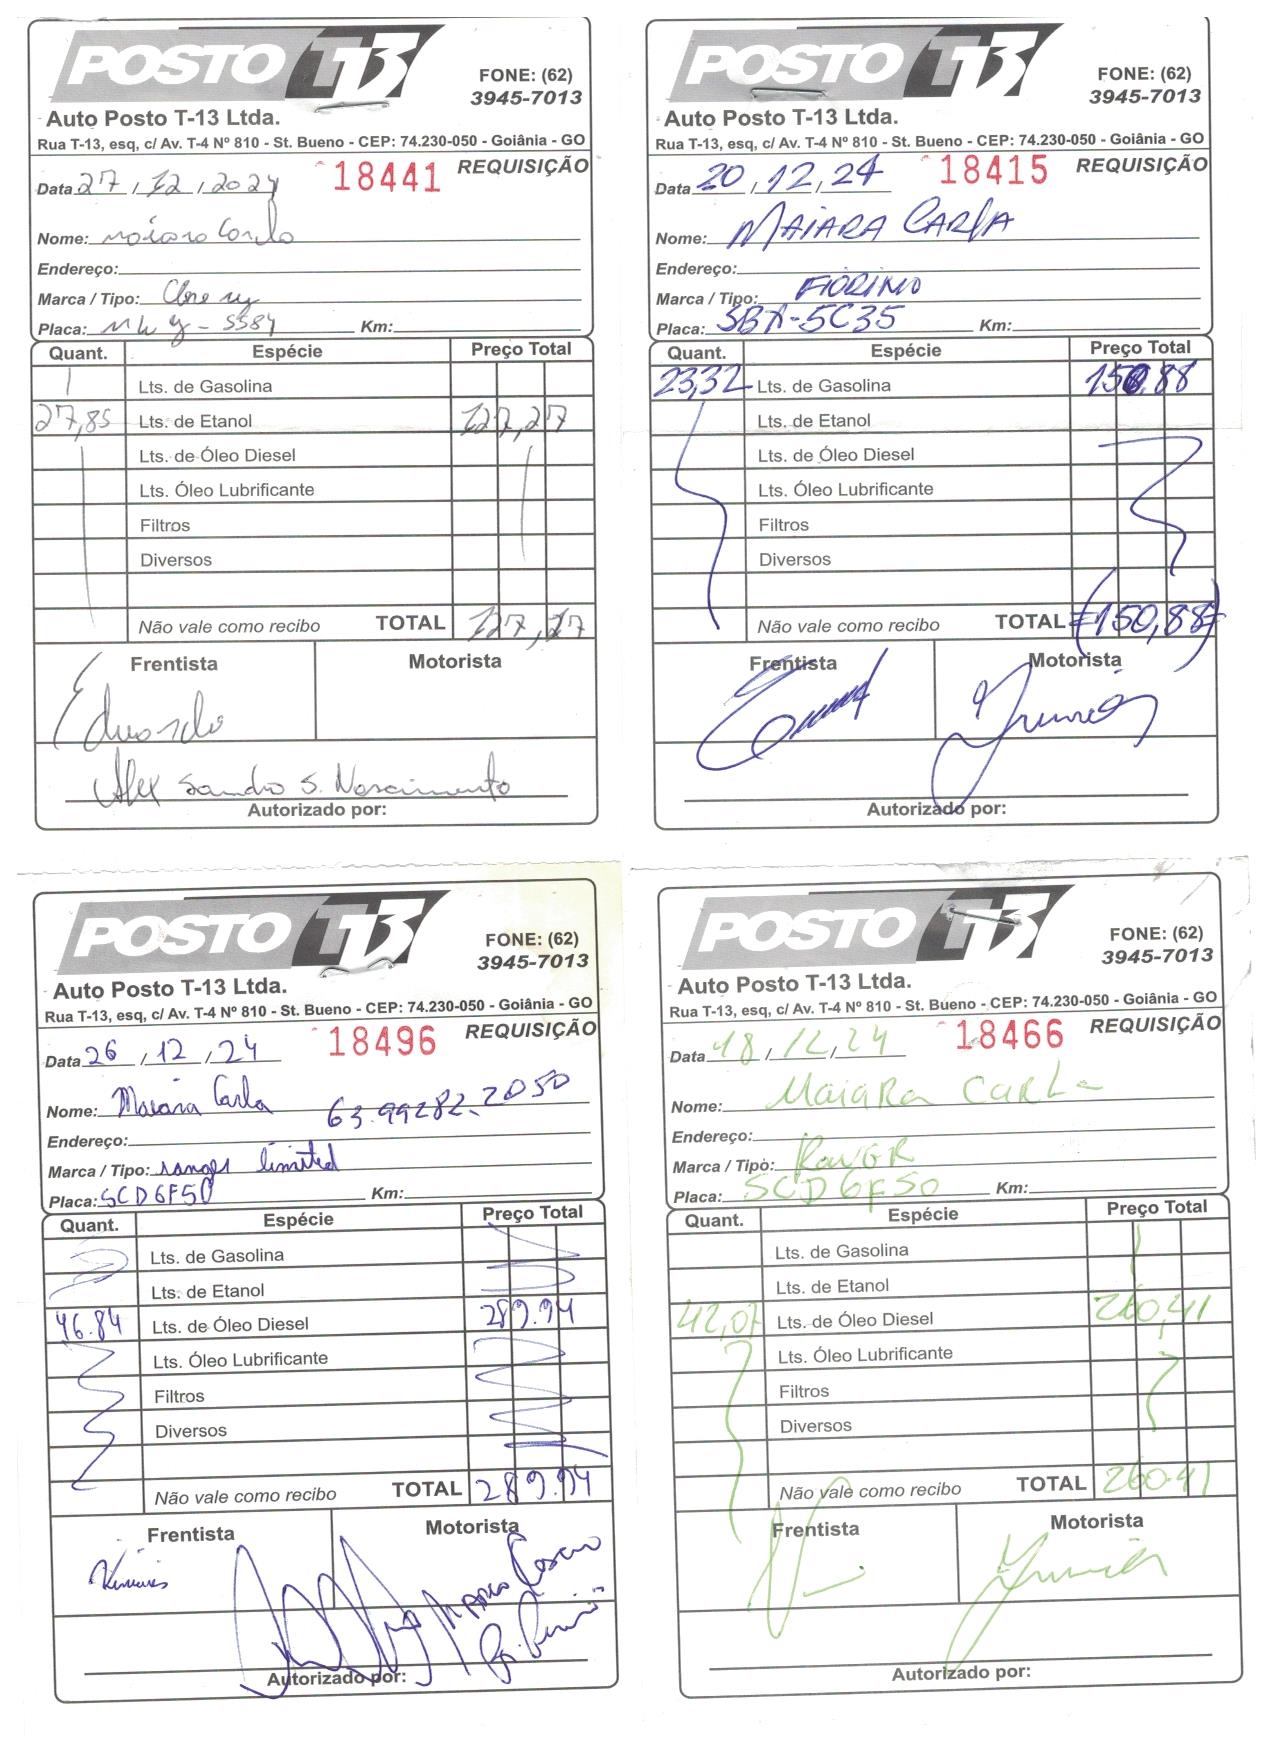 POSTO T13
FONE: (62)
3945-7013
Auto Posto T-13 Ltda.
Rua T-13, esq, c/ Av. T-4 Nº 810 - St. Bueno - CEP: 74.230-050 - Goiânia - GO
Data 27 / 12 / 2024 18441 REQUISIÇÃO
Nome: Maiara Carla
Endereço:
Marca / Tipo:
Placa: Km:
Quant. Espécie Preço Total
Lts. de Gasolina
27,85 Lts. de Etanol 127,27
Lts. de Óleo Diesel
Lts. Óleo Lubrificante
Filtros
Diversos
Não vale como recibo TOTAL 127,27
Frentista Motorista
Eduardo
Alex Sandro S. Nascimento
Autorizado por:
POSTO T13
FONE: (62)
3945-7013
Auto Posto T-13 Ltda.
Rua T-13, esq, c/ Av. T-4 Nº 810 - St. Bueno - CEP: 74.230-050 - Goiânia - GO
Data 20 / 12 / 24 18415 REQUISIÇÃO
Nome: MAIARA CARLA
Endereço:
Marca / Tipo: FIORINO
Placa: SBA-5C35 Km:
Quant. Espécie Preço Total
23,32 Lts. de Gasolina 150,88
Lts. de Etanol
Lts. de Óleo Diesel
Lts. Óleo Lubrificante
Filtros
Diversos
Não vale como recibo TOTAL (=150,88=)
Frentista Motorista
Junior
Autorizado por:
POSTO T13
FONE: (62)
3945-7013
Auto Posto T-13 Ltda.
Rua T-13, esq, c/ Av. T-4 Nº 810 - St. Bueno - CEP: 74.230-050 - Goiânia - GO
Data 26 / 12 / 24 18496 REQUISIÇÃO
Nome: Maiara Carla 63.99282.2050
Endereço:
Marca / Tipo: ranger limited
Placa: SCD6F50 Km:
Quant. Espécie Preço Total
Lts. de Gasolina
Lts. de Etanol
46.84 Lts. de Óleo Diesel 289.94
Lts. Óleo Lubrificante
Filtros
Diversos
Não vale como recibo TOTAL 289.94
Frentista Motorista
Vinicius
Autorizado por:
POSTO T13
FONE: (62)
3945-7013
Auto Posto T-13 Ltda.
Rua T-13, esq, c/ Av. T-4 Nº 810 - St. Bueno - CEP: 74.230-050 - Goiânia - GO
Data 18 / 12 / 24 18466 REQUISIÇÃO
Nome: MAIARA CARLA
Endereço:
Marca / Tipo:
Placa: SCD6F50 Km:
Quant. Espécie Preço Total
Lts. de Gasolina
Lts. de Etanol
42,07 Lts. de Óleo Diesel 260,41
Lts. Óleo Lubrificante
Filtros
Diversos
Não vale como recibo TOTAL 260.41
Frentista Motorista
Junior
Autorizado por: